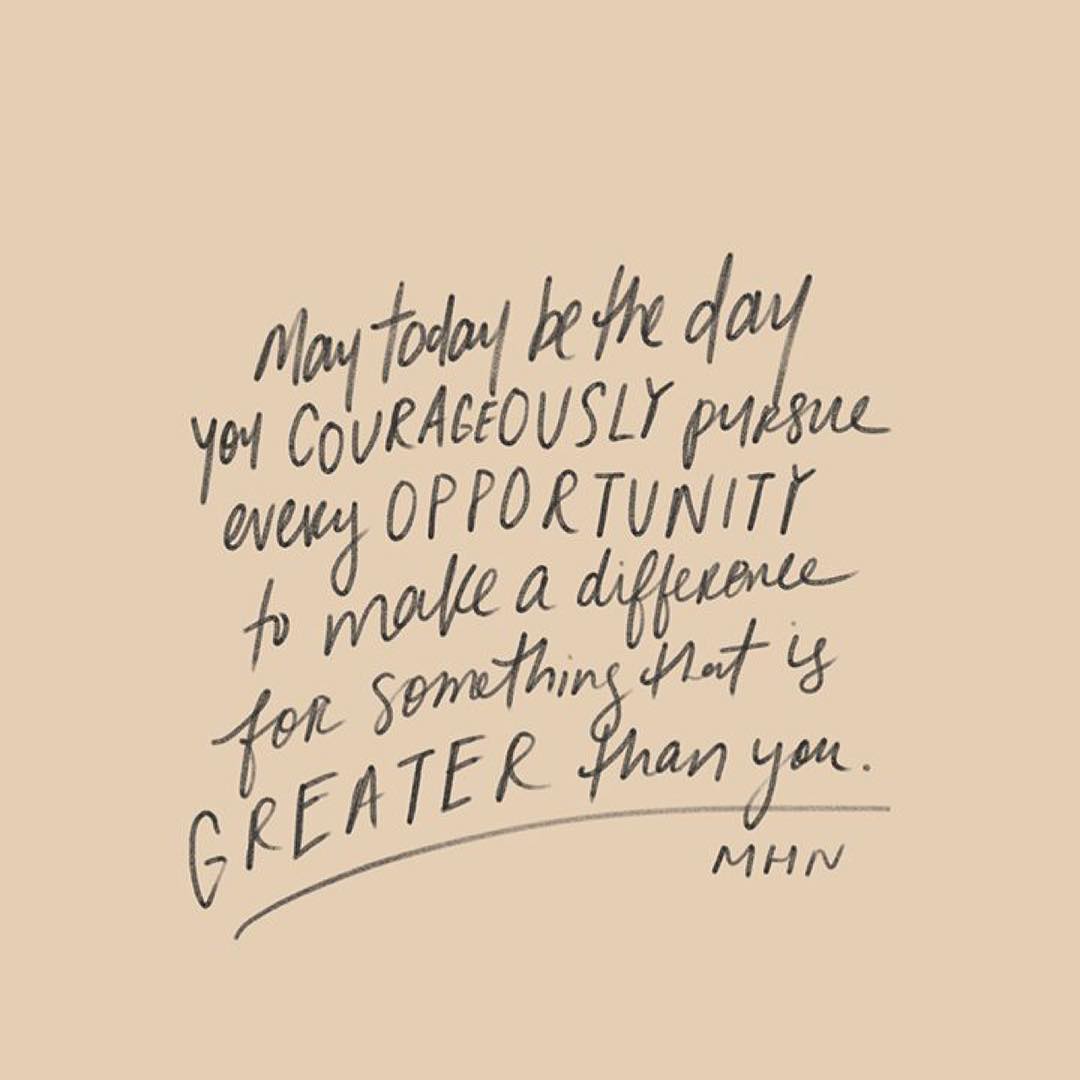 May today be the day
you COURAGEOUSLY pursue
every OPPORTUNITY
to make a difference
for something that is
GREATER than you.
MHN